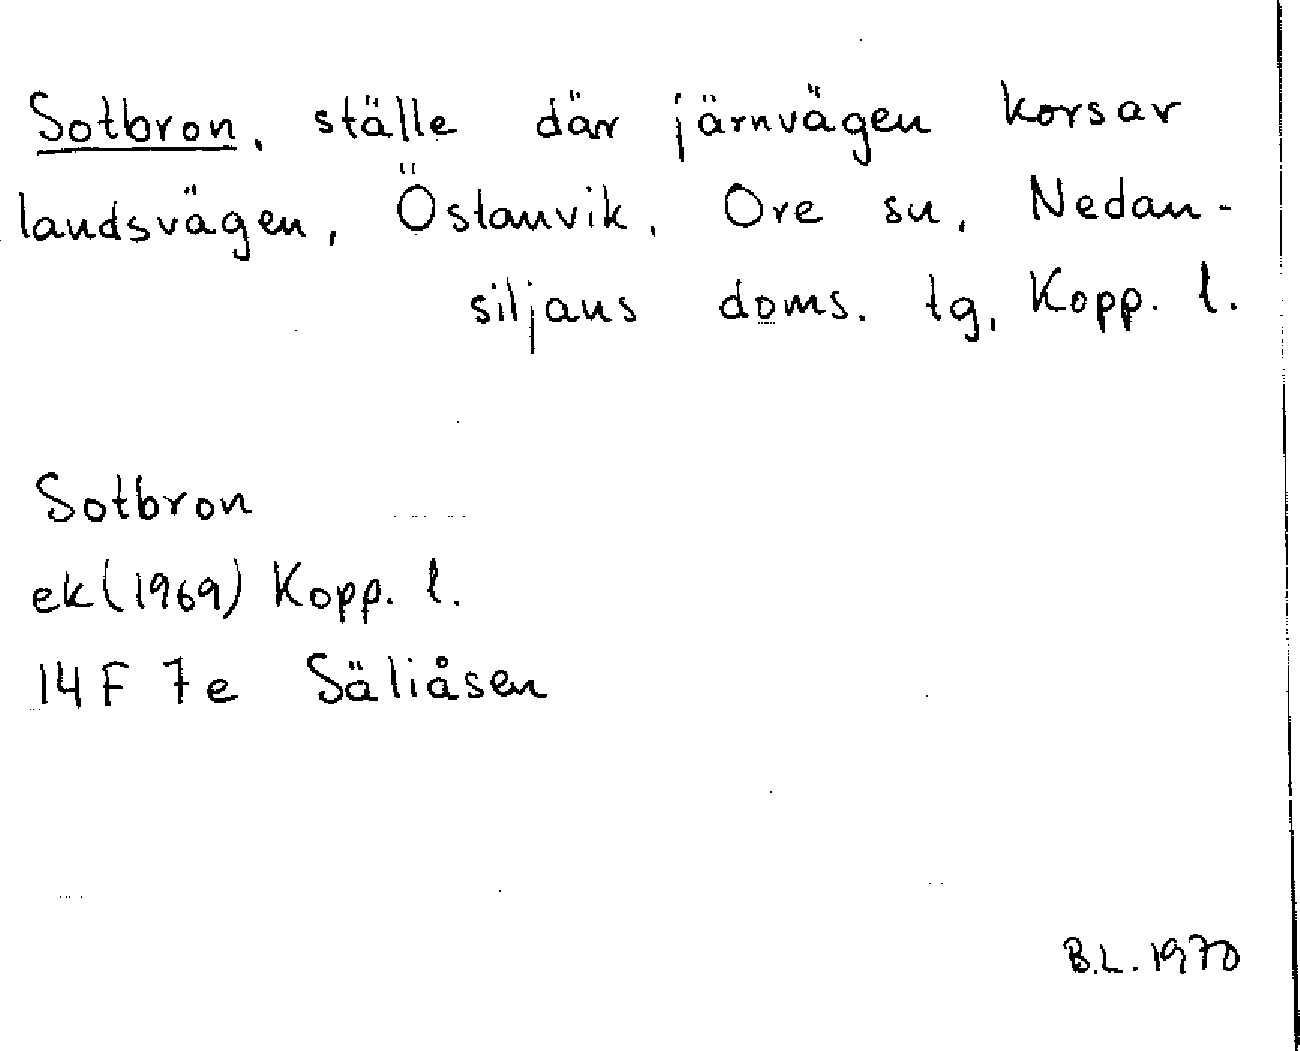 Sotbron, ställe där järnvägen korsar
landsvägen, Östanvik, Ore sn, Nedan-
siljans doms. tg, Kopp. l.
Sotbron
ek(1969) Kopp. l.
14 F 7e Säliåsen
B.L. 1970